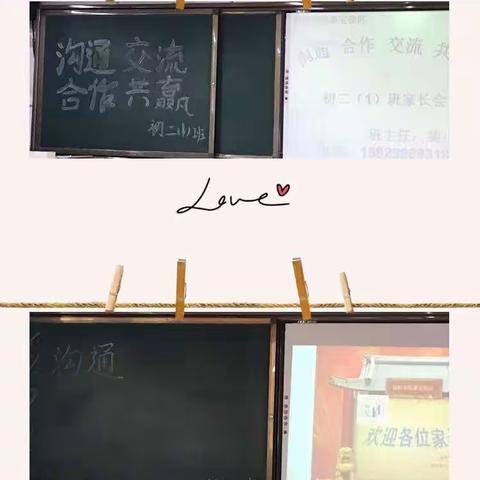 沟通 交流
合作 共赢
初二(1)班
沟通 合作 交流 共
初二（1）班家长会
班主任：
Love
沟通
欢迎各位家